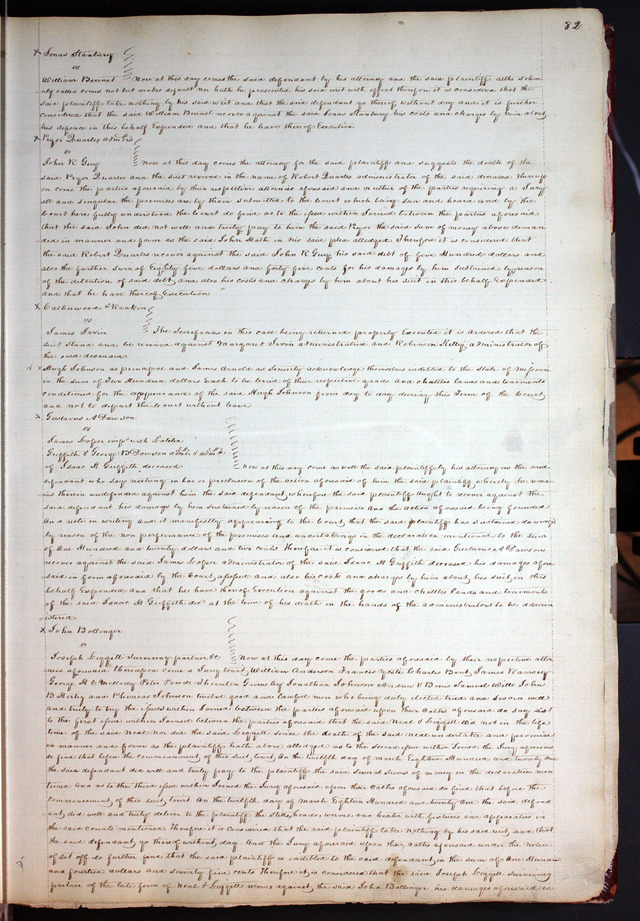 82
x Jonas Stanbury
vs
William Bonnet Now at this day comes the said defendant by his attorney and the said plaintiff altho solem
nly called comes not but makes default nor hath he prosecuted his said writ with effect therefore it is considered that the
said plaintiff take nothing by his said writ and that the said defendant go thereof without day and it is further
considered that the said William Bonnet recover against the said Jonas Stanbury his costs and charges by him about
his defence in this behalf Expended and that he have thereof Execution
x Pryor Quarles admr
vs
John R Guy Now at this day comes the attorney for the said plaintiff and suggests the death of the
said Pryor Quarles and the suit revived in the name of Robert Quarles administrator of the said deceased Thereup
on come the parties aforesaid by their respective attornies aforesaid and neither of the parties requiring a Jury
all and singular the premises are by them submitted to the Court which being seen and heard and by the
Court here fully understood the Court do find as to the issue within Joined between the parties aforesaid
that the said John did not well and truly pay to him the said Pryor the said sum of money above deman
ded in manner and form as the said John Hath in his said plea alledged Therefore it is considered that
the said Robert Quarles recover against the said John R Guy his said debt of five Hundred dollars and
also the further sum of Eighty five dollars and forty five cents for his damages by him sustained by reason
of the detention of said debt and also his costs and charges by him about his suit in this behalf Expended
and that he have thereof Execution
x Calhoun & Rankin
vs
James Irvin The Scirefacias in this case being returned properly Executed it is ordered that the
suit stand and be revived against Margaret Irvin administratrix and Robinson Kelly administrator of
the said deceased
x Hugh Johnson as principal and James Arnold as Security acknowledge themselves indebted to the State of Missouri
in the sum of Two Hundred dollars Each to be levied of their respective goods and chattles lands and tenements
conditioned for the appearance of the said Hugh Johnson from day to day during this Term of the Court
and not to depart the Court without leave
x Gustavus A Dawson
vs
James Logan with
Griffith & George W Dawson
of Isaac H Griffith deceased Now at this day come as well the said plaintiff by his attorney as the said
defendant who says nothing in bar or preclusion of the action aforesaid of him the said plaintiff whereby he rema
ins therein undefended against him the said defendant wherefore the said plaintiff ought to recover against the
said defendant his damages by him sustained by reason of the premises And the action aforesaid being founded
on a note in writing and it manifestly appearing to the Court that the said plaintiff has sustained damages
by reason of the non performance of the promises and undertakings in the declaration mentioned to the sum
of One Hundred and twenty dollars and two cents Therefore it is considered that the said Gustavus A Dawson
recover against the said James Logan administrator of the said Isaac H Griffith deceased his damages afore
said in form aforesaid by the Court assessed and also his costs and charges by him about his suit in this
behalf Expended and that he have thereof Execution against the goods and chattles lands and tenements
of the said Isaac H Griffith decd at the time of his death in the hands of the administrators to be admin
istered
x John Bollinger
vs
Joseph Liggett Surviving partner &c Now at this day come the parties aforesaid by their respective attor
nies aforesaid Thereupon come a Jury towit William Anderson Francis Charles Bont James Ramsey
George H C Melody Peter Powell Thornton Grimsley Jonathan Johnson Andrew V Bruer Samuel Wells John
B Horley and Phineas Johnson twelve good and lawful men who being duly elected tried and sworn well
and truly to try the issues within Joined between the parties aforesaid upon their Oaths aforesaid do say as
to the first issue within Joined between the parties aforesaid that the said Neal & Liggett did not in the life
time of the said Neal Nor did the said Liggett since the death of the said Neal undertake and promise
in manner and form as the plaintiff hath above alledged as to the second issue within Joined the Jury aforesaid
do find that before the commencement of this suit towit on the twelfth day of march Eighteen Hundred and twenty One
the said defendant did well and truly deliver to the plaintiff the said several sums of money in the declaration men
tioned And as to the third issue within Joined the Jury aforesaid upon their Oaths aforesaid do find that before the
commencement of this suit towit On the twelfth day of March Eighteen Hundred and twenty One the said defend
ant did well and truly deliver to the plaintiff the stills heads worms and heater with fixtures and apparatus in
the said counts mentioned Therefore it is considered that the said plaintiff take Nothing by his said writ and that
the said defendant go thereof without day And the Jury aforesaid upon their oaths aforesaid under the notice
of set off do further find that the said plaintiff is indebted to the said defendant in the sum of One Hundred
and fourteen dollars and seventy five cents Therefore it is considered that the said Joseph Liggett surviving
partner of the late firm of Neal & Liggett recover against the said John Bollinger his damages aforesaid in